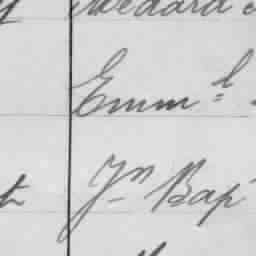 Medard
Emm.l
Jn Bap